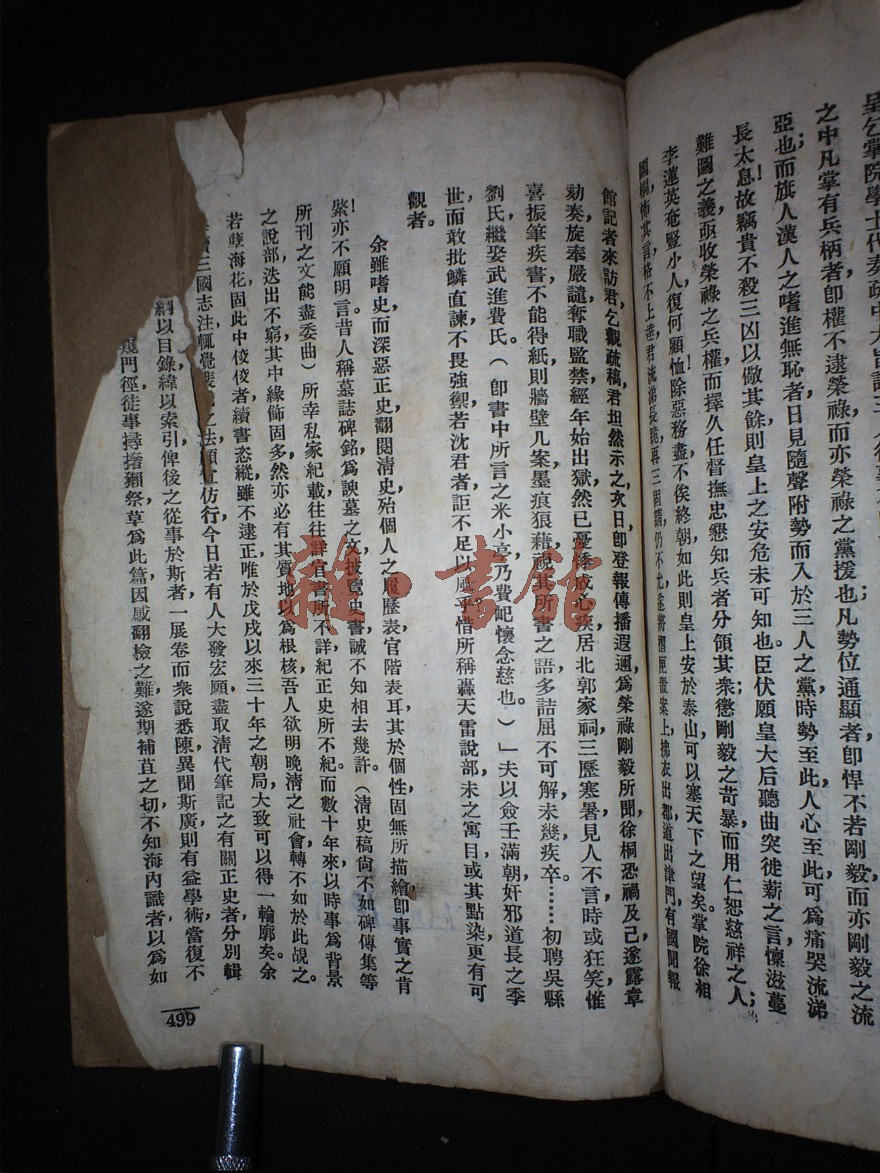 呈乞掌院學士代奏疏中大旨謂三人行
之中凡掌有兵柄者卽權不逮榮祿而亦榮祿之黨援也凡勢位通顯者卽悍不若剛毅而亦剛毅之流
亞也；而旗人漢人之嗜進無恥者日見隨聲附勢而入於三人之黨，時勢至此人心至此可爲痛哭流涕
長太息！故竊貴不殺三凶以儆其餘，則皇上之安危未可知也。臣伏願皇太后聽曲突徙薪之言懍滋蔓
難圖之義亟收榮祿之兵權而擇久任督撫忠懇知兵者分領其衆；懲剛毅之苛暴而用仁恕慈祥之人；
李蓮英奄豎小人復何顧恤除惡務盡不俟終朝如此則皇上安於泰山可以塞天下之望矣。掌院徐相
國桐，怖其言格不上達君流涕長跪，再三固請，仍不允遂將摺匣置案上，拂衣出都道出津門，有國聞報
館記者來訪君，乞觀疏稿君坦然示之，次日卽登報傳播遐邇，爲榮祿剛毅所聞徐桐恐禍及己遂露章
劾奏，旋奉嚴譴奪職監禁經年始出獄，然已憂悸成心疾，居北郭家祠，三歷寒暑見人不言時或狂笑，惟
喜振筆疾書，不能得紙則牆壁几案，墨痕狼藉，視其所書之語多詰屈不可解未幾疾卒。……初聘吳縣
劉氏，繼娶武進費氏。（卽書中所言之米小亭，乃費屺懷念慈也。）」夫以僉壬滿朝奸邪道長之季
世，而敢批鱗直諫，不畏強禦若沈君者詎不足以風乎？惜所稱轟天雷說部，未之寓目，或其點染更有可
觀者。
余雖嗜史，而深惡正史，翻閱清史殆個人之履歷表官階表耳，其於個性，固無所描繪，卽事實之肯
綮，亦不願明言。昔人稱墓誌碑銘爲諛墓之文，披覽史書，誠不知相去幾許。（清史稿尙不如碑傳集等
所刊之文能盡委曲）所幸私家紀載往往詳官書所不詳，紀正史所不紀，而數十年來，以時事爲背景
之說部，迭出不窮，其中緣飾固多，然亦必有其質地以爲根核，吾人欲明晚清之社會，轉不如於此覘之。
若孽海花固此中佼佼者，續書恣縱，雖不逮正，唯於戊戌以來三十年之朝局，大致可以得一輪廓矣。余
三國志注，輒覺裴之法，頗宜仿行，今日若有人大發宏願，盡取清代筆記之有關正史者，分別輯
綱以目錄，緯以索引，俾後之從事於斯者，一展卷而衆說悉陳，異聞斯廣，則有益學術，當復不
窺門徑，徒事撏撦獺祭，草爲此篇，因感翻檢之難，遂期補苴之切，不知海內識者以爲如
499
雜·書館